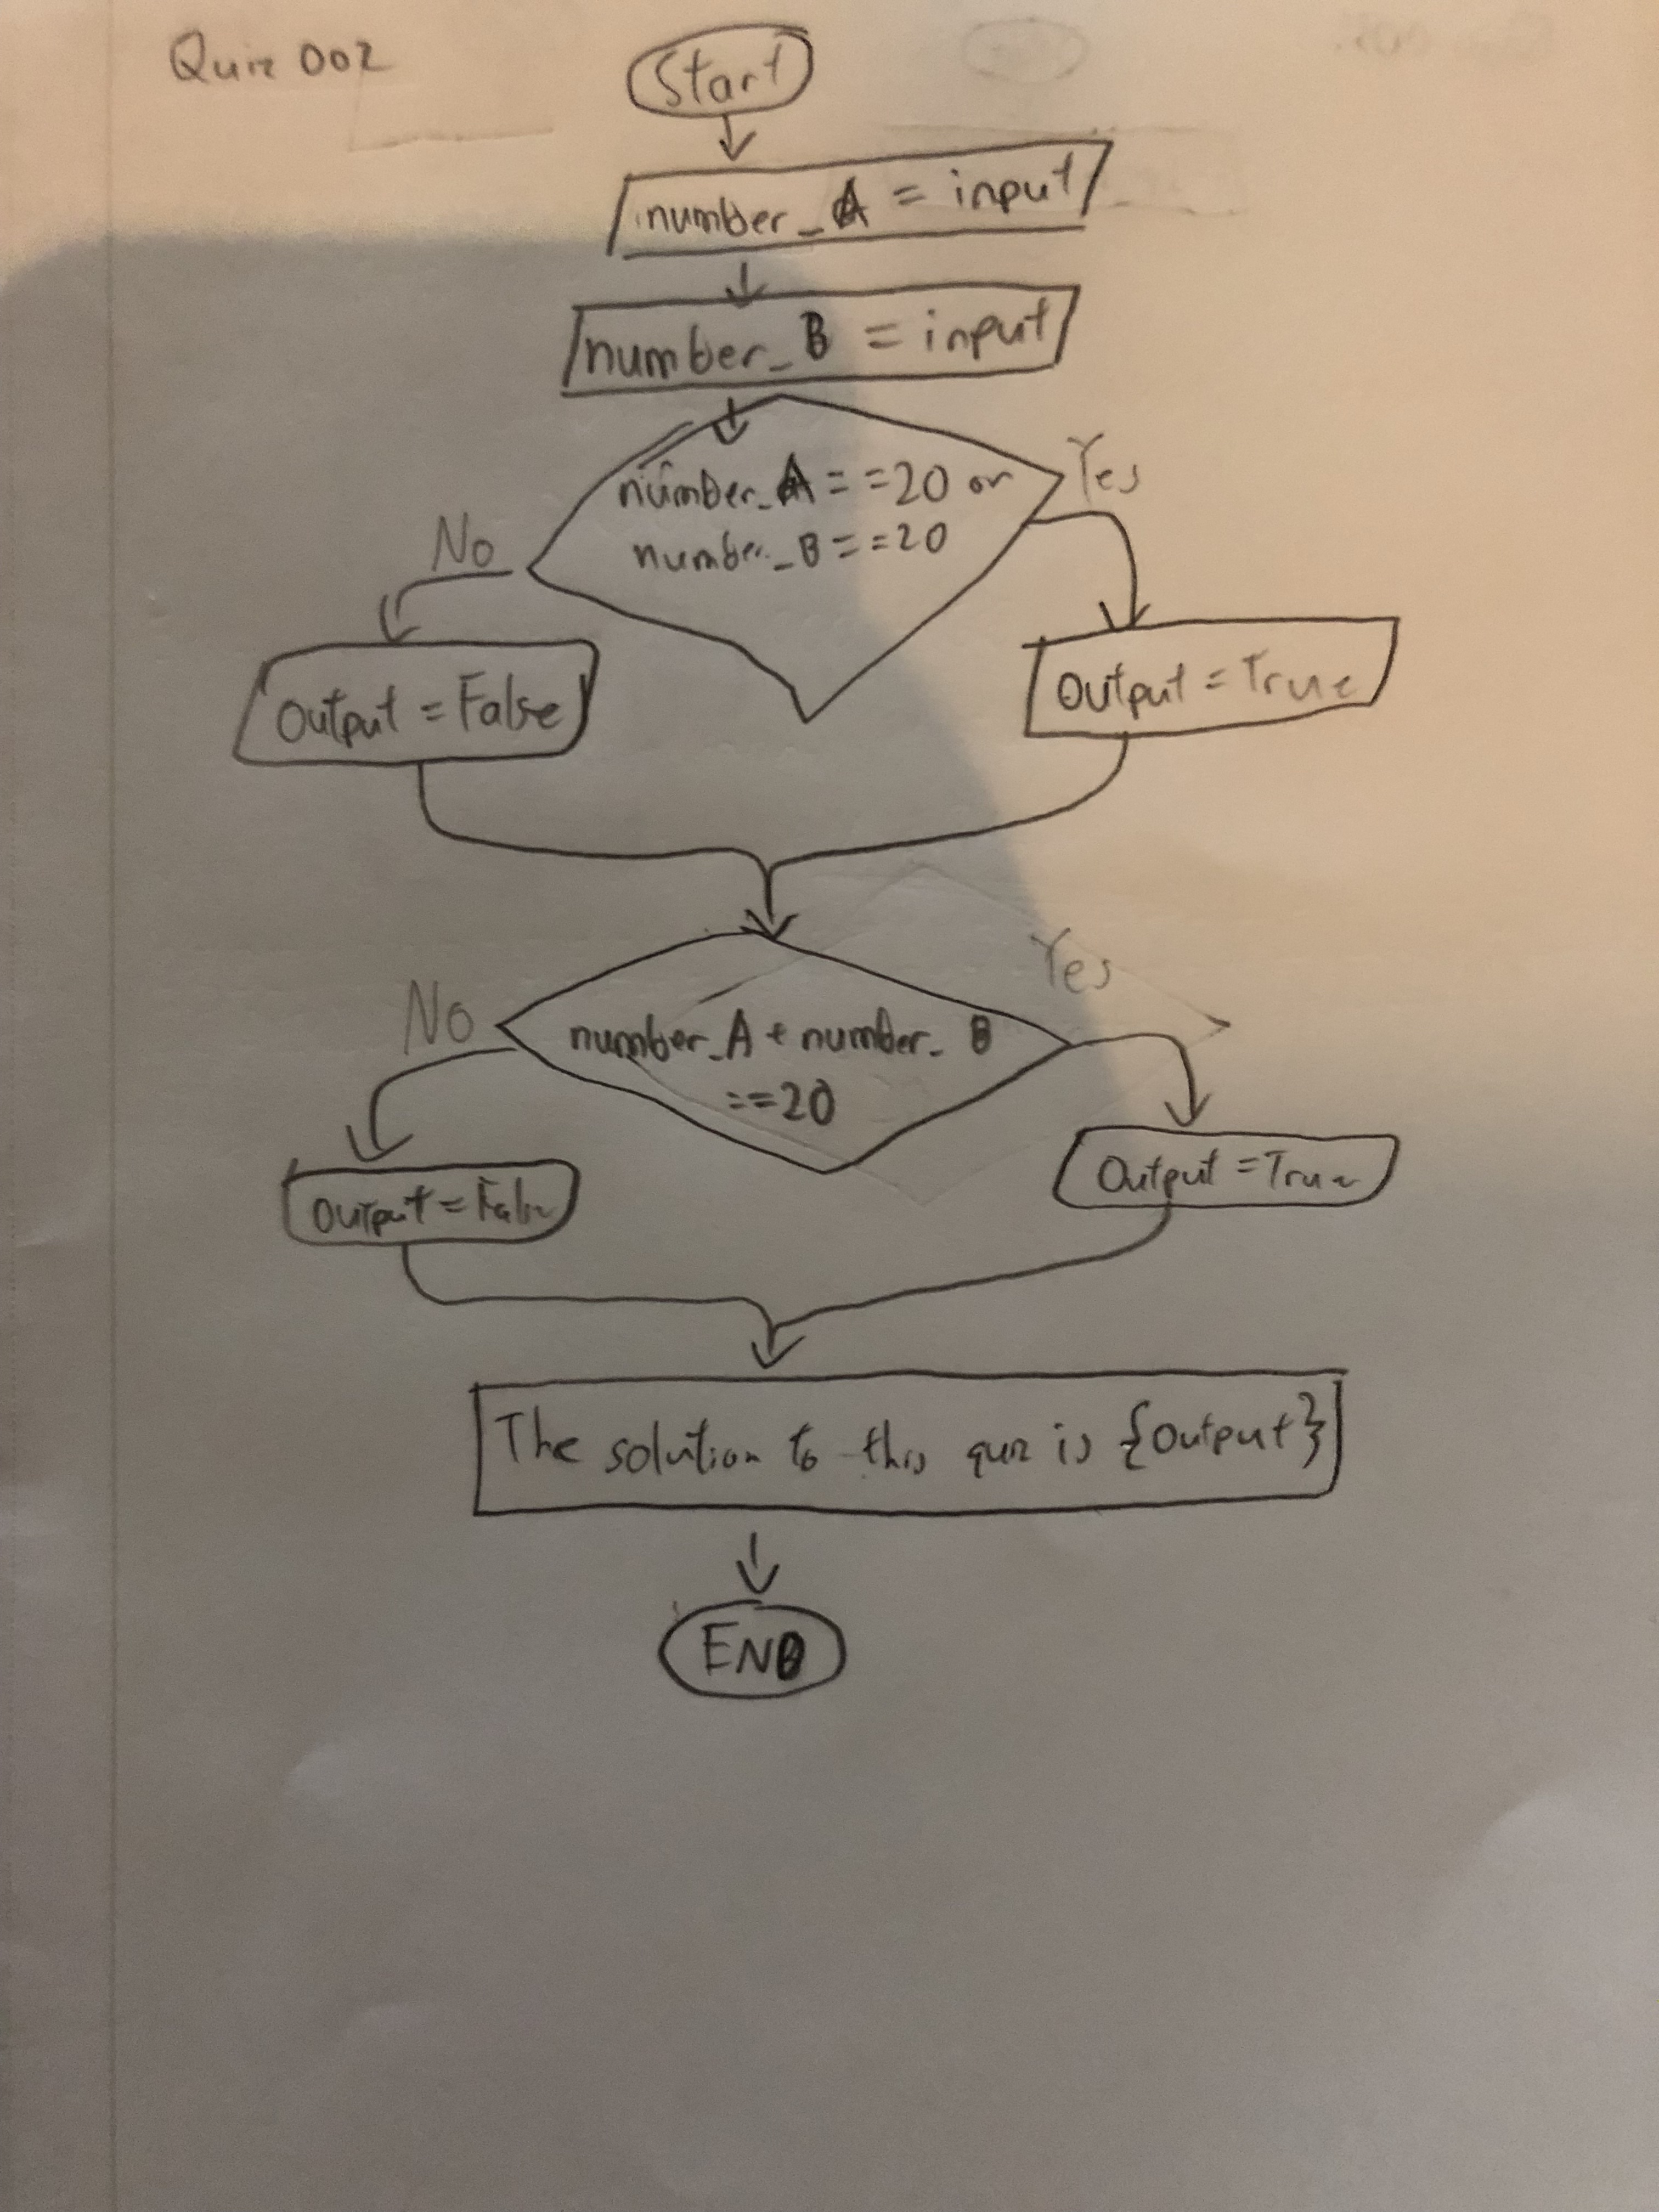 Quiz 002
Start
number_A = input
number_B = input
number_A = =20 or
number_B = =20
Yes
No
Output = False
Output = True
Yes
No
number_A + number_B
==20
Output = True
Output = False
The solution to this quiz is {Output}
END